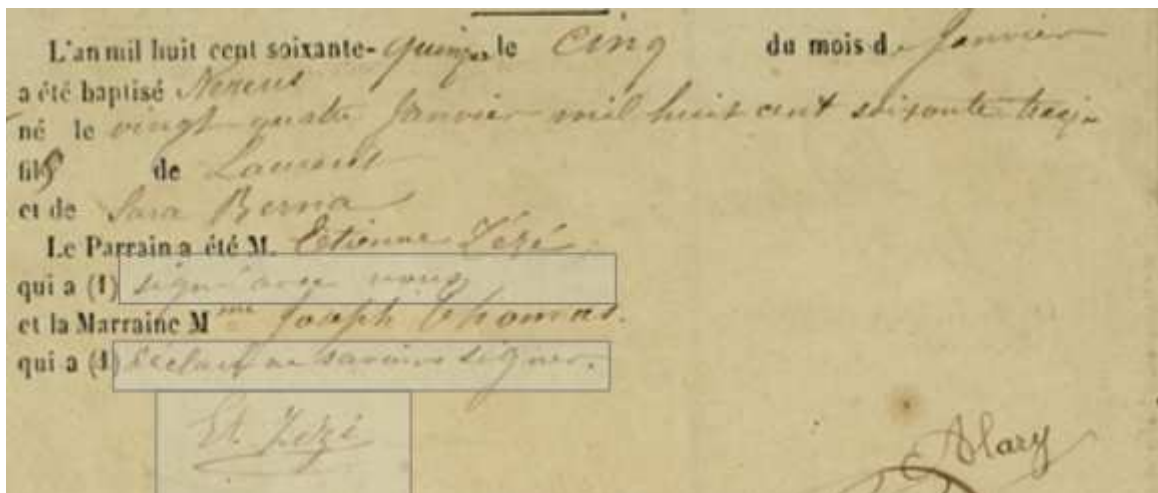 L'an mil huit cent soixante-quinze le Cinq du mois de Janvier
a été baptisé Nereus
né le vingt quatre Janvier mil huit cent soixante treize
fils de Laurent
et de Sara Berna
Le Parrain a été M. Etienne Zézé
qui a (1) signé avec nous
et la Marraine Mme Joseph Thomas.
qui a (1) déclaré ne savoir signer.
Et. Zézé
Alary